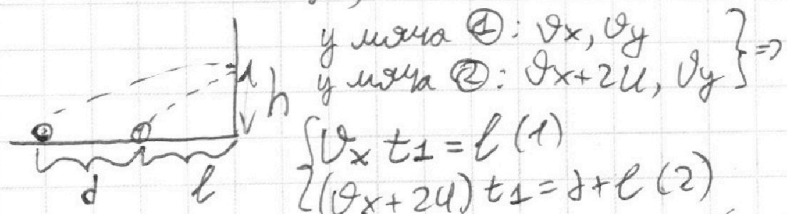 у мяча ①: ϑx, ϑy
у мяча ②: ϑx+2u, ϑy } =>
h
d l
{ ϑx t1 = l (1)
(ϑx+2u) t1 = d+l (2)